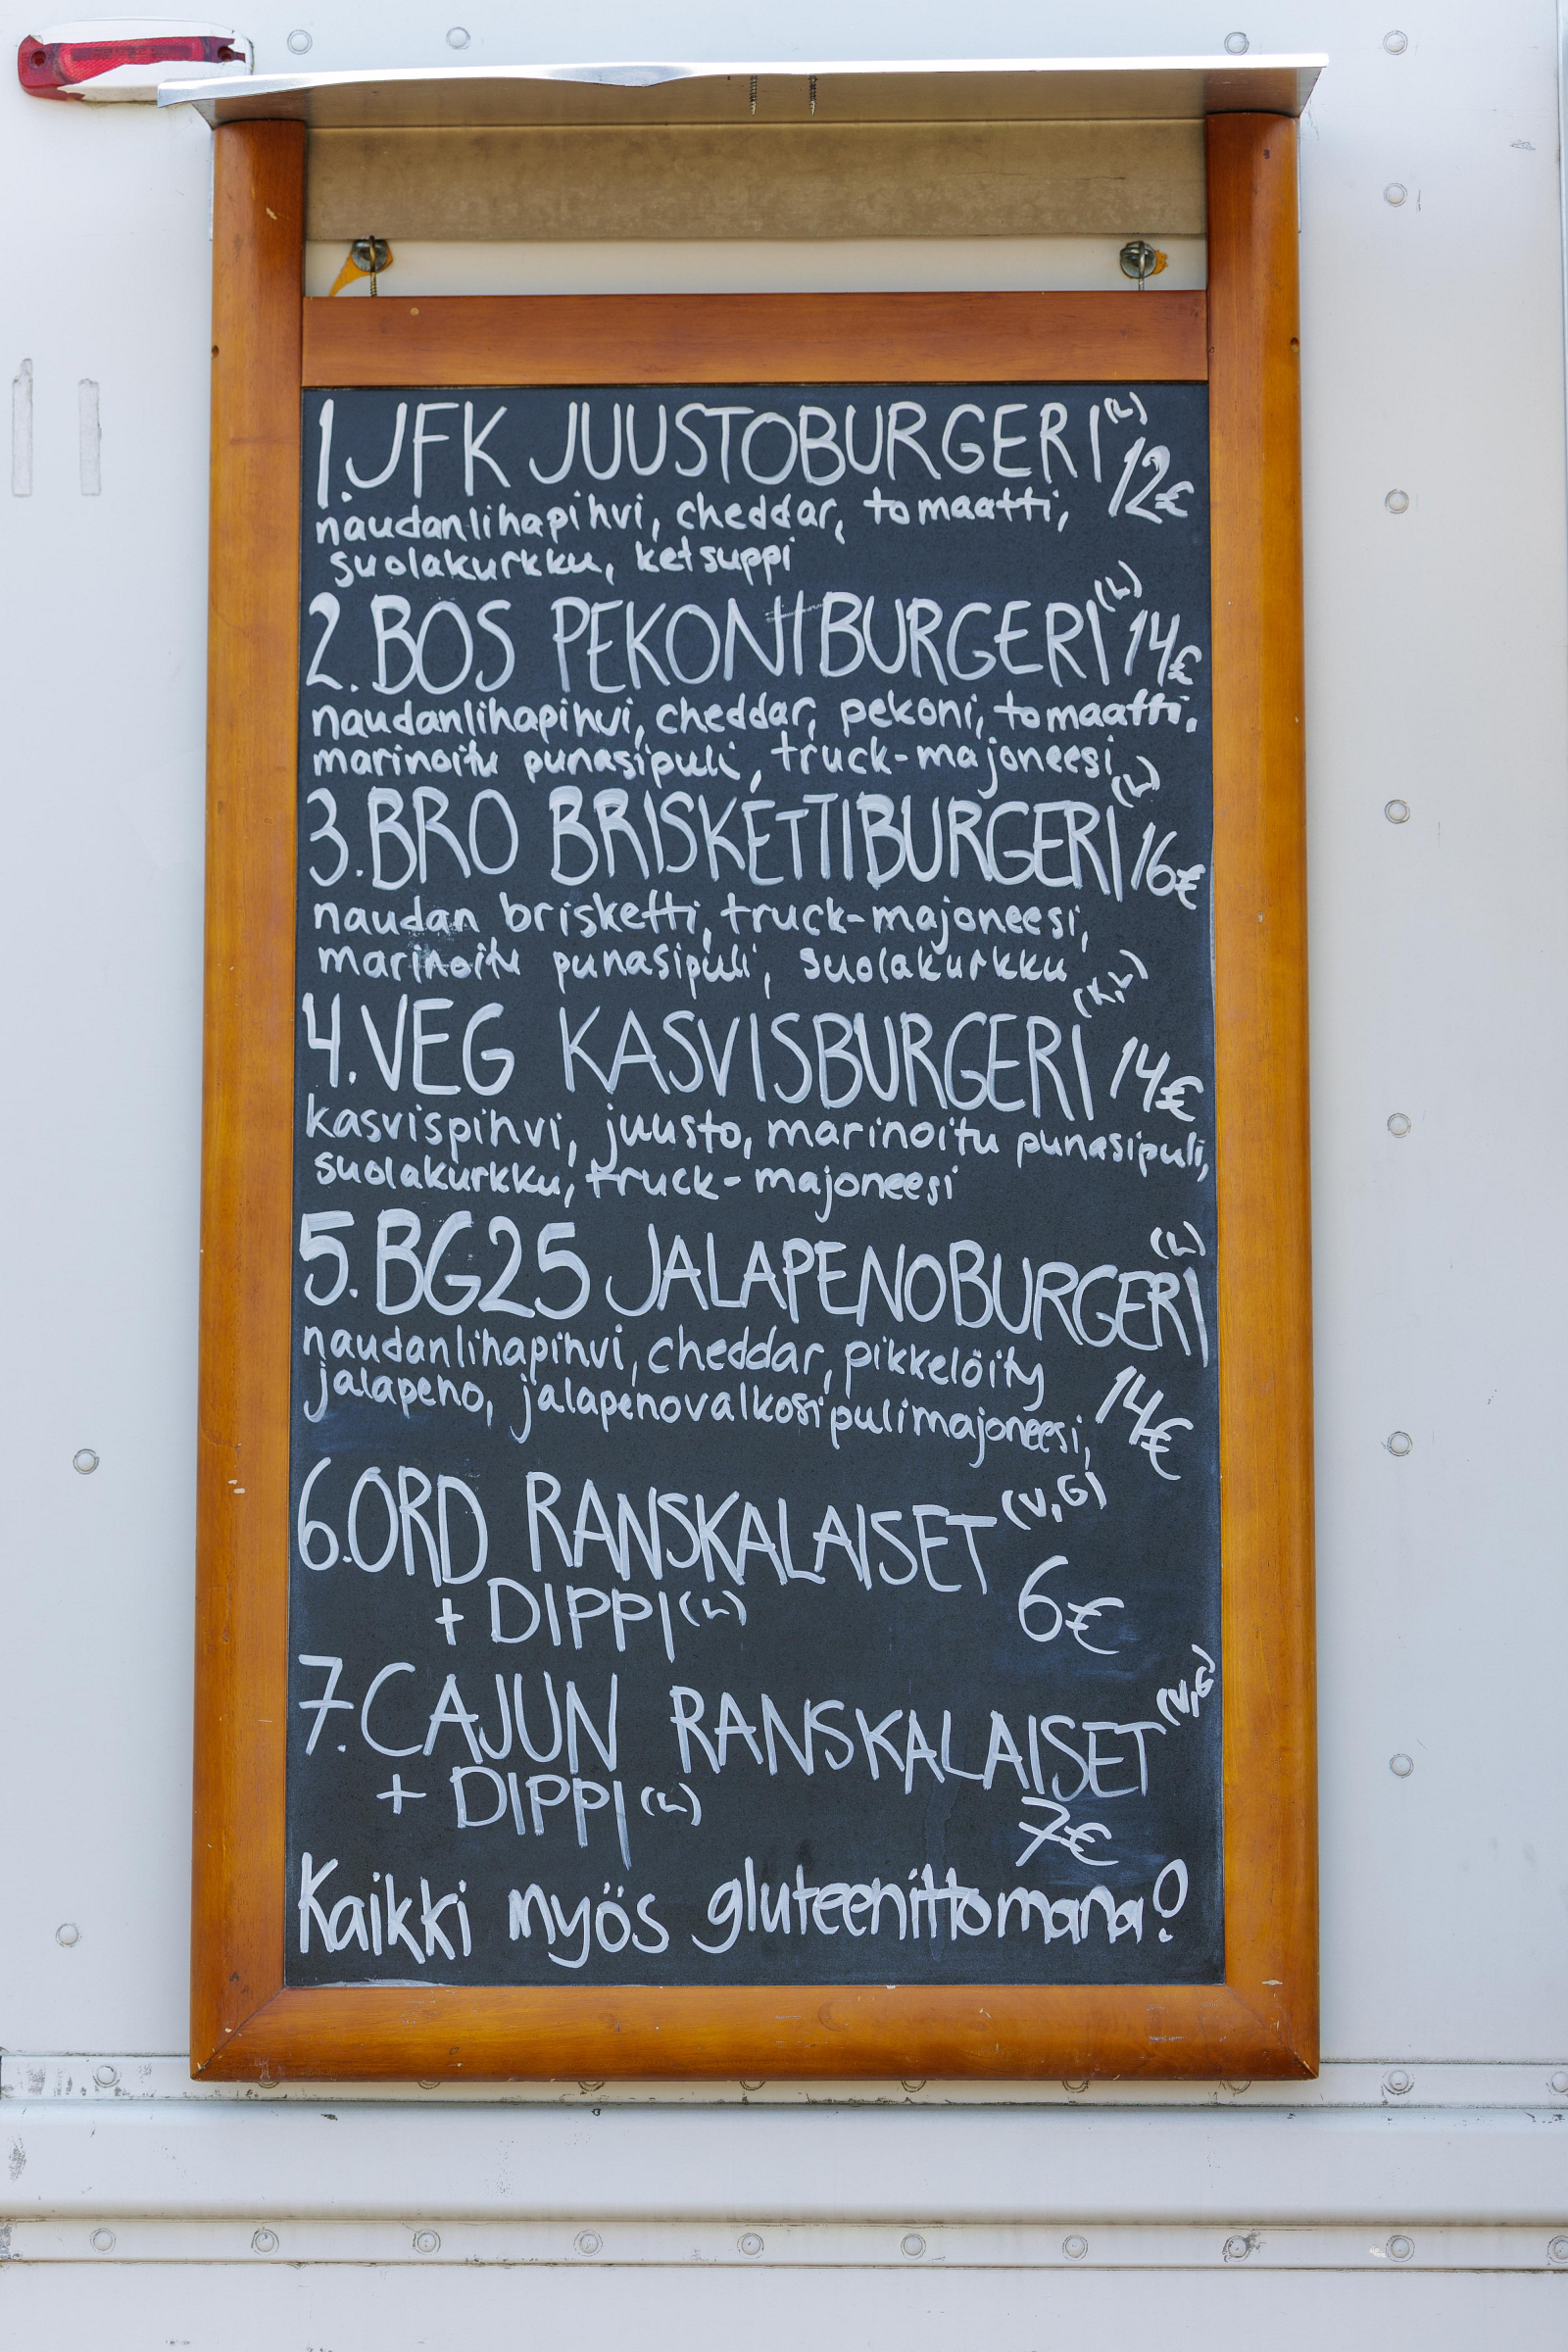 1. JFK JUUSTOBURGERI (L) 12€
naudanlihapihvi, cheddar, tomaatti,
suolakurkku, ketsuppi
2. BOS PEKONIBURGERI (L) 14€
naudanlihapihvi, cheddar, pekoni, tomaatti,
marinoitu punasipuli, truck-majoneesi
3. BRO BRISKETTIBURGERI (L) 16€
naudan brisketti, truck-majoneesi,
marinoitu punasipuli, suolakurkku
4. VEG KASVISBURGERI (K,L) 14€
kasvispihvi, juusto, marinoitu punasipuli,
suolakurkku, truck-majoneesi
5. BG25 JALAPENOBURGERI (L)
naudanlihapihvi, cheddar, pikkelöity
jalapeno, jalapenovalkosipulimajoneesi, 14€
6. ORD RANSKALAISET (V,G)
+ DIPPI (L) 6€
7. CAJUN RANSKALAISET (V,G)
+ DIPPI (L) 7€
Kaikki myös gluteenittomana!